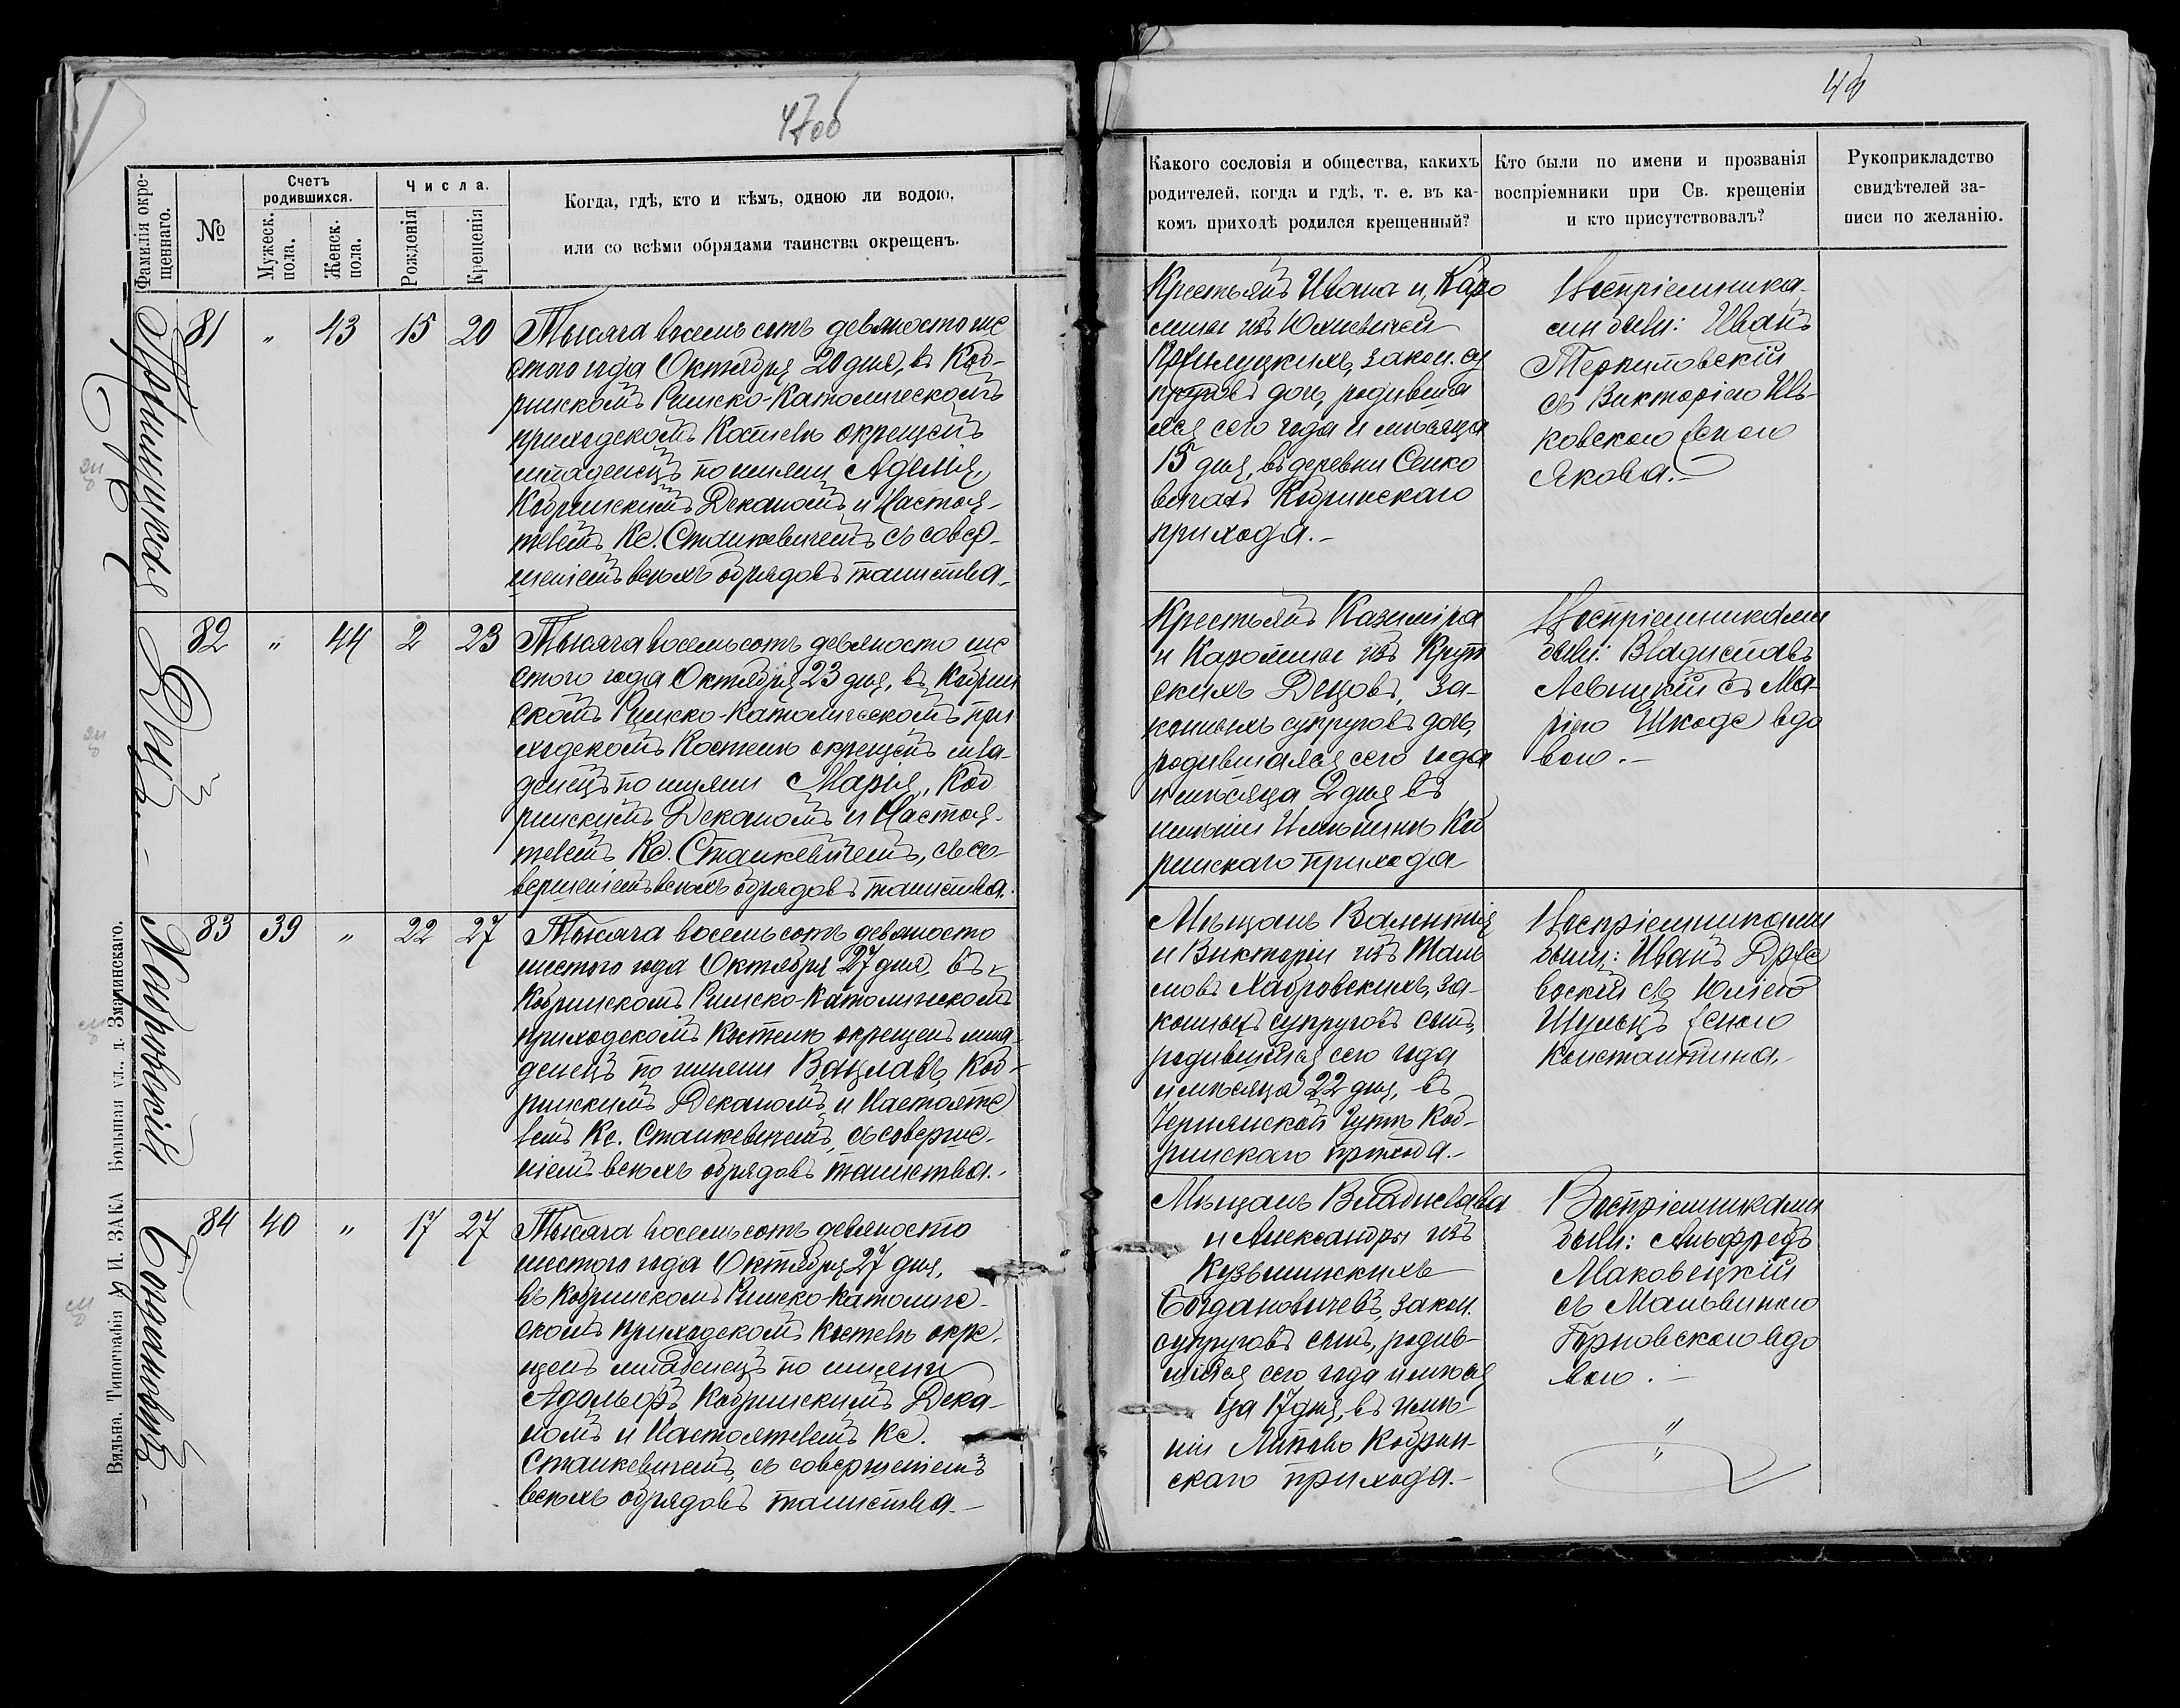 47об
48
Фамилія окре-
щеннаго.
№
Счетъ
родившихся.
Мужеск.
пола.
Женск.
пола.
Числа.
Рожденія
Крещенія
Когда, гдѣ, кто и кѣмъ, одною ли водою,
или со всѣми обрядами таинства окрещенъ.
81 „ 43 15 20
Тысяча восемь сотъ девяносто ше
стого года Октября 20 дня, въ Коб-
ринскомъ Римско-Католическомъ
приходскомъ Костелѣ окрещенъ
младенецъ по имени Аделія,
Кобринскимъ Деканомъ и Настоя-
телемъ Кс. Станкевичемъ съ совер-
шеніемъ всѣхъ обрядовъ таинства.
Децъ
82 „ 44 2 23
Тысяча восемь сотъ девяносто ше
стого года Октября 23 дня, въ Кобрин
скомъ Римско-Католическомъ при
ходскомъ Костелѣ окрещенъ мла-
денецъ по имени Марія, Коб
ринскимъ Деканомъ и Настоя-
телемъ Кс. Станкевичемъ, съ со-
вершеніемъ всѣхъ обрядовъ таинства.
Хабровскій
83 39 „ 22 27
Тысяча восемь сотъ девяносто
шестого года Октября 27 дня, въ
Кобринскомъ Римско-Католическомъ
приходскомъ Костелѣ окрещенъ мла
денецъ по имени Вацлавъ, Коб-
ринскимъ Деканомъ и Настояте
лемъ Кс. Станкевичемъ, съ соверше-
ніемъ всѣхъ обрядовъ таинства.
Богдановичъ
84 40 „ 17 27
Тысяча восемь сотъ девяносто
шестого года Октября 27 дня,
въ Кобринскомъ Римско-Католиче-
скомъ приходскомъ Костелѣ окре-
щенъ младенецъ по имени
Адольфъ Кобринскимъ Дека-
номъ и Настоятелемъ Кс.
Станкевичемъ, съ совершеніемъ
всѣхъ обрядовъ таинства.
Вильна, Типографія И. ЗАКА Большая ул., д. Змачинскаго.
Какого сословія и общества, какихъ
родителей, когда и гдѣ, т. е. въ ка-
комъ приходѣ родился крещенный?
Кто были по имени и прозванія
воспріемники при Св. крещеніи
и кто присутствовалъ?
Рукоприкладство
свидѣтелей за-
писи по желанію.
Крестьянъ Ивана и Каро
лины изъ Юхневичей
закон. су
пруговъ дочь, родивша
яся сего года и мѣсяца
15 дня, въ деревни Сенко
вичахъ Кобринскаго
прихода.-
Воспріемника-
ми были: Иванъ
съ Викторіею Иль-
ковскою женою
Якова.-
Крестьянъ Казиміра
и Каролины изъ Крут
скихъ Децовъ, за-
конныхъ супруговъ дочь,
родившаяся сего года
и мѣсяца 2 дня въ
имѣніи Коб
ринскаго прихода
Воспріемниками
были: Владиславъ
Левицкій съ Ма-
ріею Шкоде вдо
вою.-
Мѣщанъ Валентія
и Викторіи изъ
Хабровскихъ, за-
конныхъ супруговъ сынъ,
родившійся сего года
и мѣсяца 22 дня, въ
Чернянской Гутѣ Коб-
ринскаго прихода.-
Воспріемниками
были: Иванъ
съ Юліею
Шульцъ женою
Константина.
Мѣщанъ Владислава
и Александры изъ
Кузьминскихъ
Богдановичевъ, закон.
супруговъ сынъ, родив-
шійся сего года и мѣся
ца 17 дня, въ имѣ-
ніи Липово Кобрин-
скаго прихода.-
Воспріемниками
были: Альфредъ
Маковецкій
съ Мальвиною
Горновскою вдо
вою.-